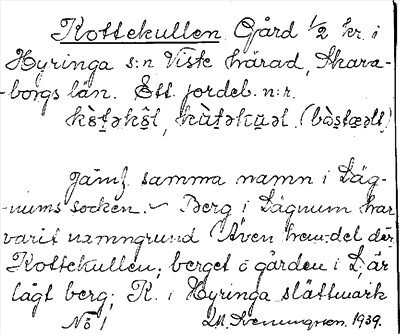 Kottekullen Gård 1/2 kr. i
Hyringa s:n Viste härad, Skara-
-borgs län. Ett jordel. n:r.
Jämf. samma namn i Läg-
-nums socken. – Berg i Lägnum har
varit namngrund Även hem-del där
Kottekullen; berget o gården i L, är
lågt berg; K. i Hyringa slättmark
No 1 1939.